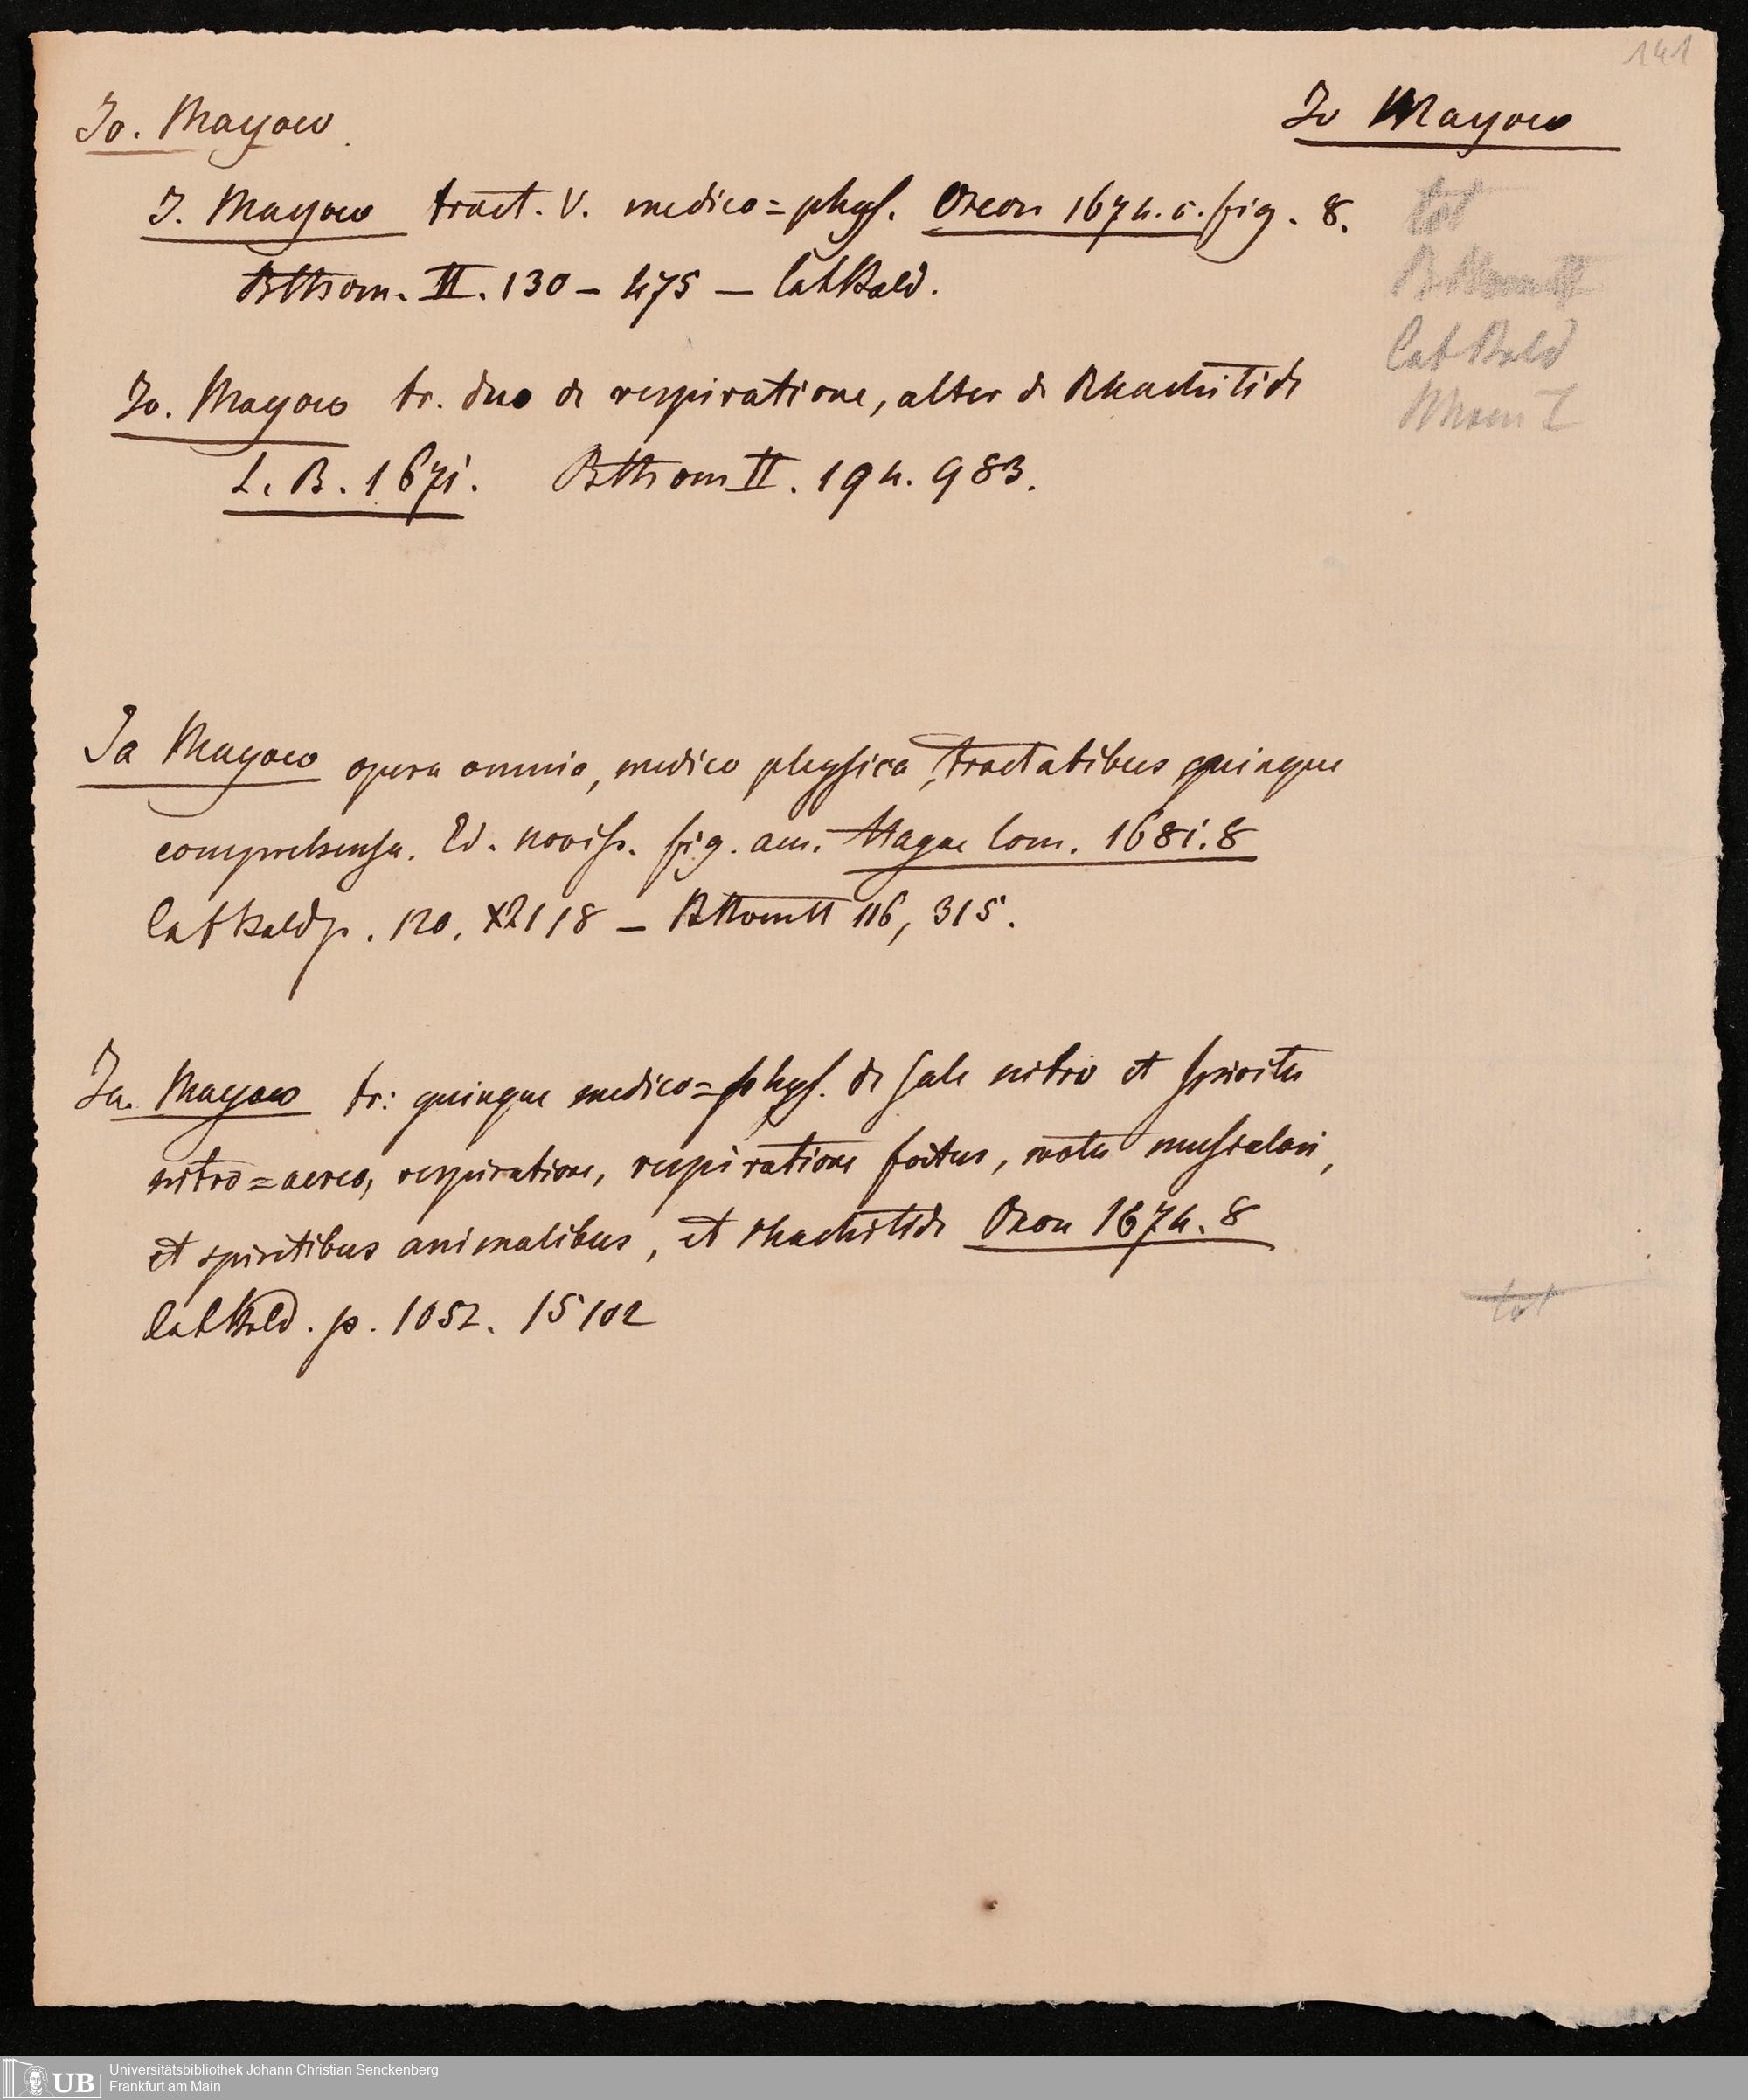 141
Jo. Mayow
Jo Mayow
J. Mayow tract. V. medico=phys. Oxon 1674. c. fig. 8.
BThom. II. 130 – 475 – CatBald.
Jo. Mayow tr. duo de respiratione, alter de Rhachitide
L. B. 1671. BThom II. 194. 983.
tot
BThom II
CatBald
Ja Mayow opera omnia, medico physica, tractatibus quinque
comprehensa. Ed. noviss. fig. aen. Hagae Com. 1681. 8
CatBald p. 120. X2118 – BThomII 116, 315.
Ja. Mayow tr: quinque medico=phys. de sale nitro et spiritu
nitro=aereo, respiratione, respiratione foetus, motu musculari,
et spiritibus animalibus, et rhachitide Oxon 1674. 8
CatBald. p. 1052. 15102
tot
UB Universitätsbibliothek Johann Christian Senckenberg
Frankfurt am Main